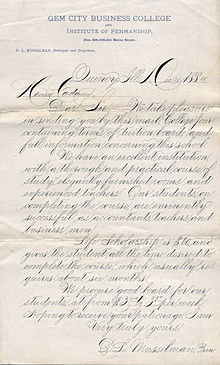 GEM CITY BUSINESS COLLEGE
AND
INSTITUTE OF PENMANSHIP,
D. L. MUSSELMAN, Principal and Proprietor.
Quincy, Ill.
Dear Sir: We take pleasure
in sending you by this mail College
containing terms of tuition board and
full information concerning this school.
We have an excellent institution
with a thorough and practical course of
study, elegantly furnished rooms and
experienced teachers. Our students on
completing the course, are eminently
successful as accountants, teachers and
business men.
Life Scholarship is and
gives the student all the time desired to
complete the course, which usually re-
quires about six months.
We procure good board for our
students, at from per week.
Hoping to receive your patronage, I am
Very truly yours,
D. L. Musselman, Prin.